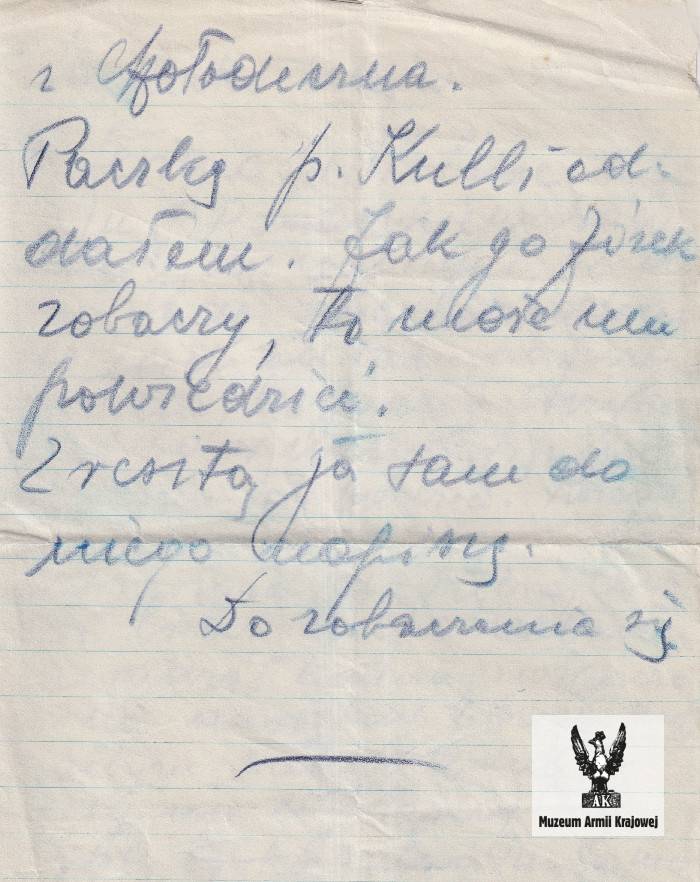 z Mołodeczna.
Paczkę p. Kulli od-
dałem. Jak go Józek
zobaczy, to może mu
powiedzieć.
Zresztą ja sam do
niego napiszę.
Do zobaczenia się
AK
Muzeum Armii Krajowej